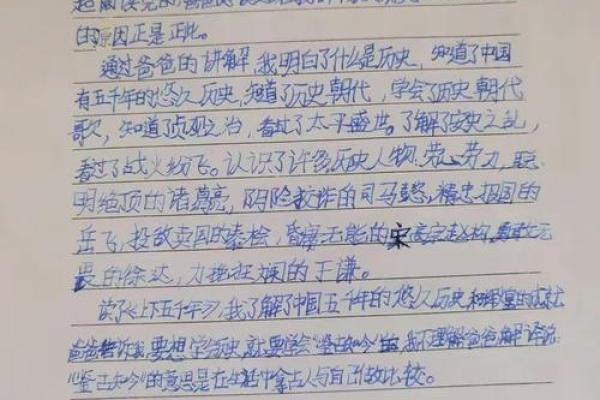 的原因正是正此。
通过爸爸的讲解,我明白了什么是历史,知道了中国
有五千年的悠久历史,知道了历史朝代,学会了历史朝代
歌,知道了贞观之治,看过了太平盛世。了解了安史之乱,
看过了战火纷飞。认识了许多历史人物:劳心劳力,聪
明绝顶的诸葛亮,阴险狡诈的司马懿,精忠报国的
岳飞,投敌卖国的秦桧,昏庸无能的宋高宗赵构,勇敢无
畏的徐达,力挽狂澜的于谦。
读了《上下五千年》,我了解了中国五千年的悠久历史和辉煌的成就
爸爸告诉我,要想学会历史,就要学会"鉴古知今",我不理解爸爸解译说:
"鉴古知今"的意思是在生活中拿古人与自己做比较。